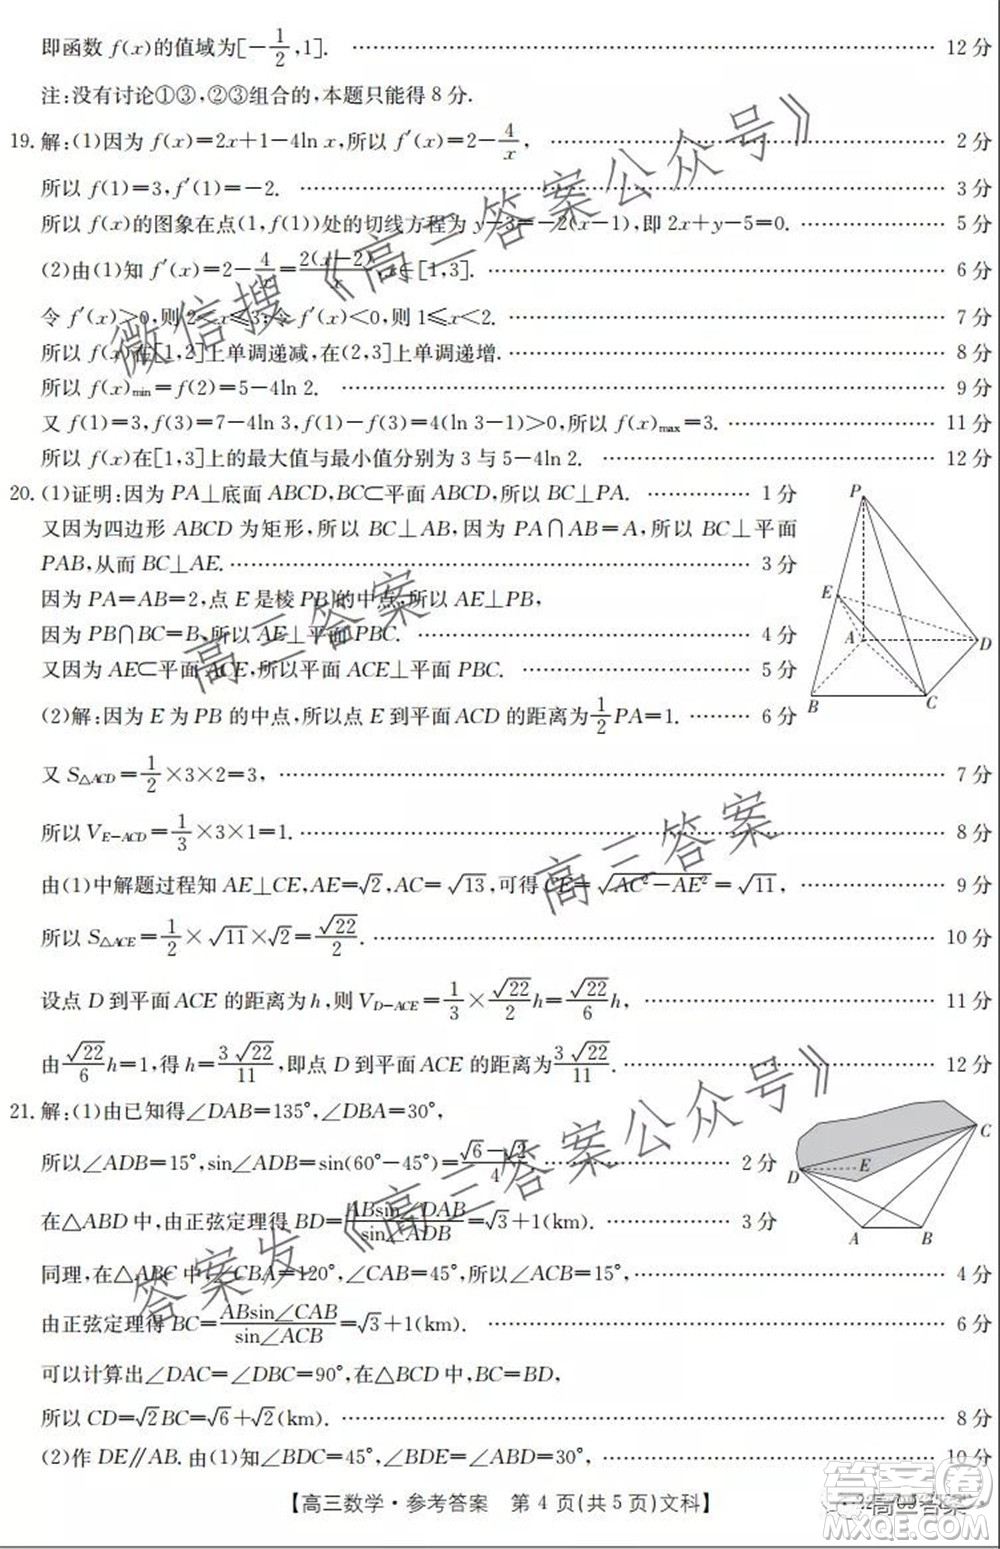 即函数 f(x)的值域为[-1/2,1]. 12 分
注:没有讨论①③,②③组合的,本题只能得 8 分.
19. 解:(1)因为 f(x)=2x+1-4ln x,所以 f′(x)=2-4/x, 2 分
所以 f(1)=3,f′(1)=-2. 3 分
所以 f(x)的图象在点(1,f(1))处的切线方程为 y-3=-2(x-1),即 2x+y-5=0. 5 分
(2)由(1)知 f′(x)=2-4/x=2(x-2)/x,x∈[1,3]. 6 分
令 f′(x)>0,则 2<x≤3;令 f′(x)<0,则 1≤x<2. 7 分
所以 f(x)在[1,2]上单调递减,在(2,3]上单调递增. 8 分
所以 f(x)min=f(2)=5-4ln 2. 9 分
又 f(1)=3,f(3)=7-4ln 3,f(1)-f(3)=4(ln 3-1)>0,所以 f(x)max=3. 11 分
所以 f(x)在[1,3]上的最大值与最小值分别为 3 与 5-4ln 2. 12 分
20. (1)证明:因为 PA⊥底面 ABCD,BC⊂平面 ABCD,所以 BC⊥PA. 1 分
又因为四边形 ABCD 为矩形,所以 BC⊥AB,因为 PA∩AB=A,所以 BC⊥平面
PAB,从而 BC⊥AE. 3 分
因为 PA=AB=2,点 E 是棱 PB 的中点,所以 AE⊥PB,
因为 PB∩BC=B,所以 AE⊥平面 PBC. 4 分
又因为 AE⊂平面 ACE,所以平面 ACE⊥平面 PBC. 5 分
P
E
A
D
B
C
(2)解:因为 E 为 PB 的中点,所以点 E 到平面 ACD 的距离为1/2PA=1. 6 分
又 S△ACD=1/2×3×2=3, 7 分
所以 V_E-ACD=1/3×3×1=1. 8 分
由(1)中解题过程知 AE⊥CE,AE=√2,AC=√13,可得 CE=√(AC²-AE²)=√11, 9 分
所以 S△ACE=1/2×√11×√2=√22/2. 10 分
设点 D 到平面 ACE 的距离为 h,则 V_D-ACE=1/3×√22/2h=√22/6h, 11 分
由√22/6h=1,得 h=3√22/11,即点 D 到平面 ACE 的距离为3√22/11. 12 分
21. 解:(1)由已知得∠DAB=135°,∠DBA=30°,
所以∠ADB=15°,sin∠ADB=sin(60°-45°)=(√6-√2)/4 2 分
在△ABD 中,由正弦定理得 BD=ABsin∠DAB/sin∠ADB=√3+1(km). 3 分
C
D
E
A
B
同理,在△ABC 中,∠CBA=120°,∠CAB=45°,所以∠ACB=15°, 4 分
由正弦定理得 BC=ABsin∠CAB/sin∠ACB=√3+1(km). 6 分
可以计算出∠DAC=∠DBC=90°,在△BCD 中,BC=BD,
所以 CD=√2BC=√6+√2(km). 8 分
(2)作 DE∥AB.由(1)知∠BDC=45°,∠BDE=∠ABD=30°, 10 分
【高三数学·参考答案 第 4 页(共 5 页)文科】
微信搜《高三答案公众号》
高三答案
高三答案
答案发《高三答案公众号》
高三答案
答案圈
MXQE.COM